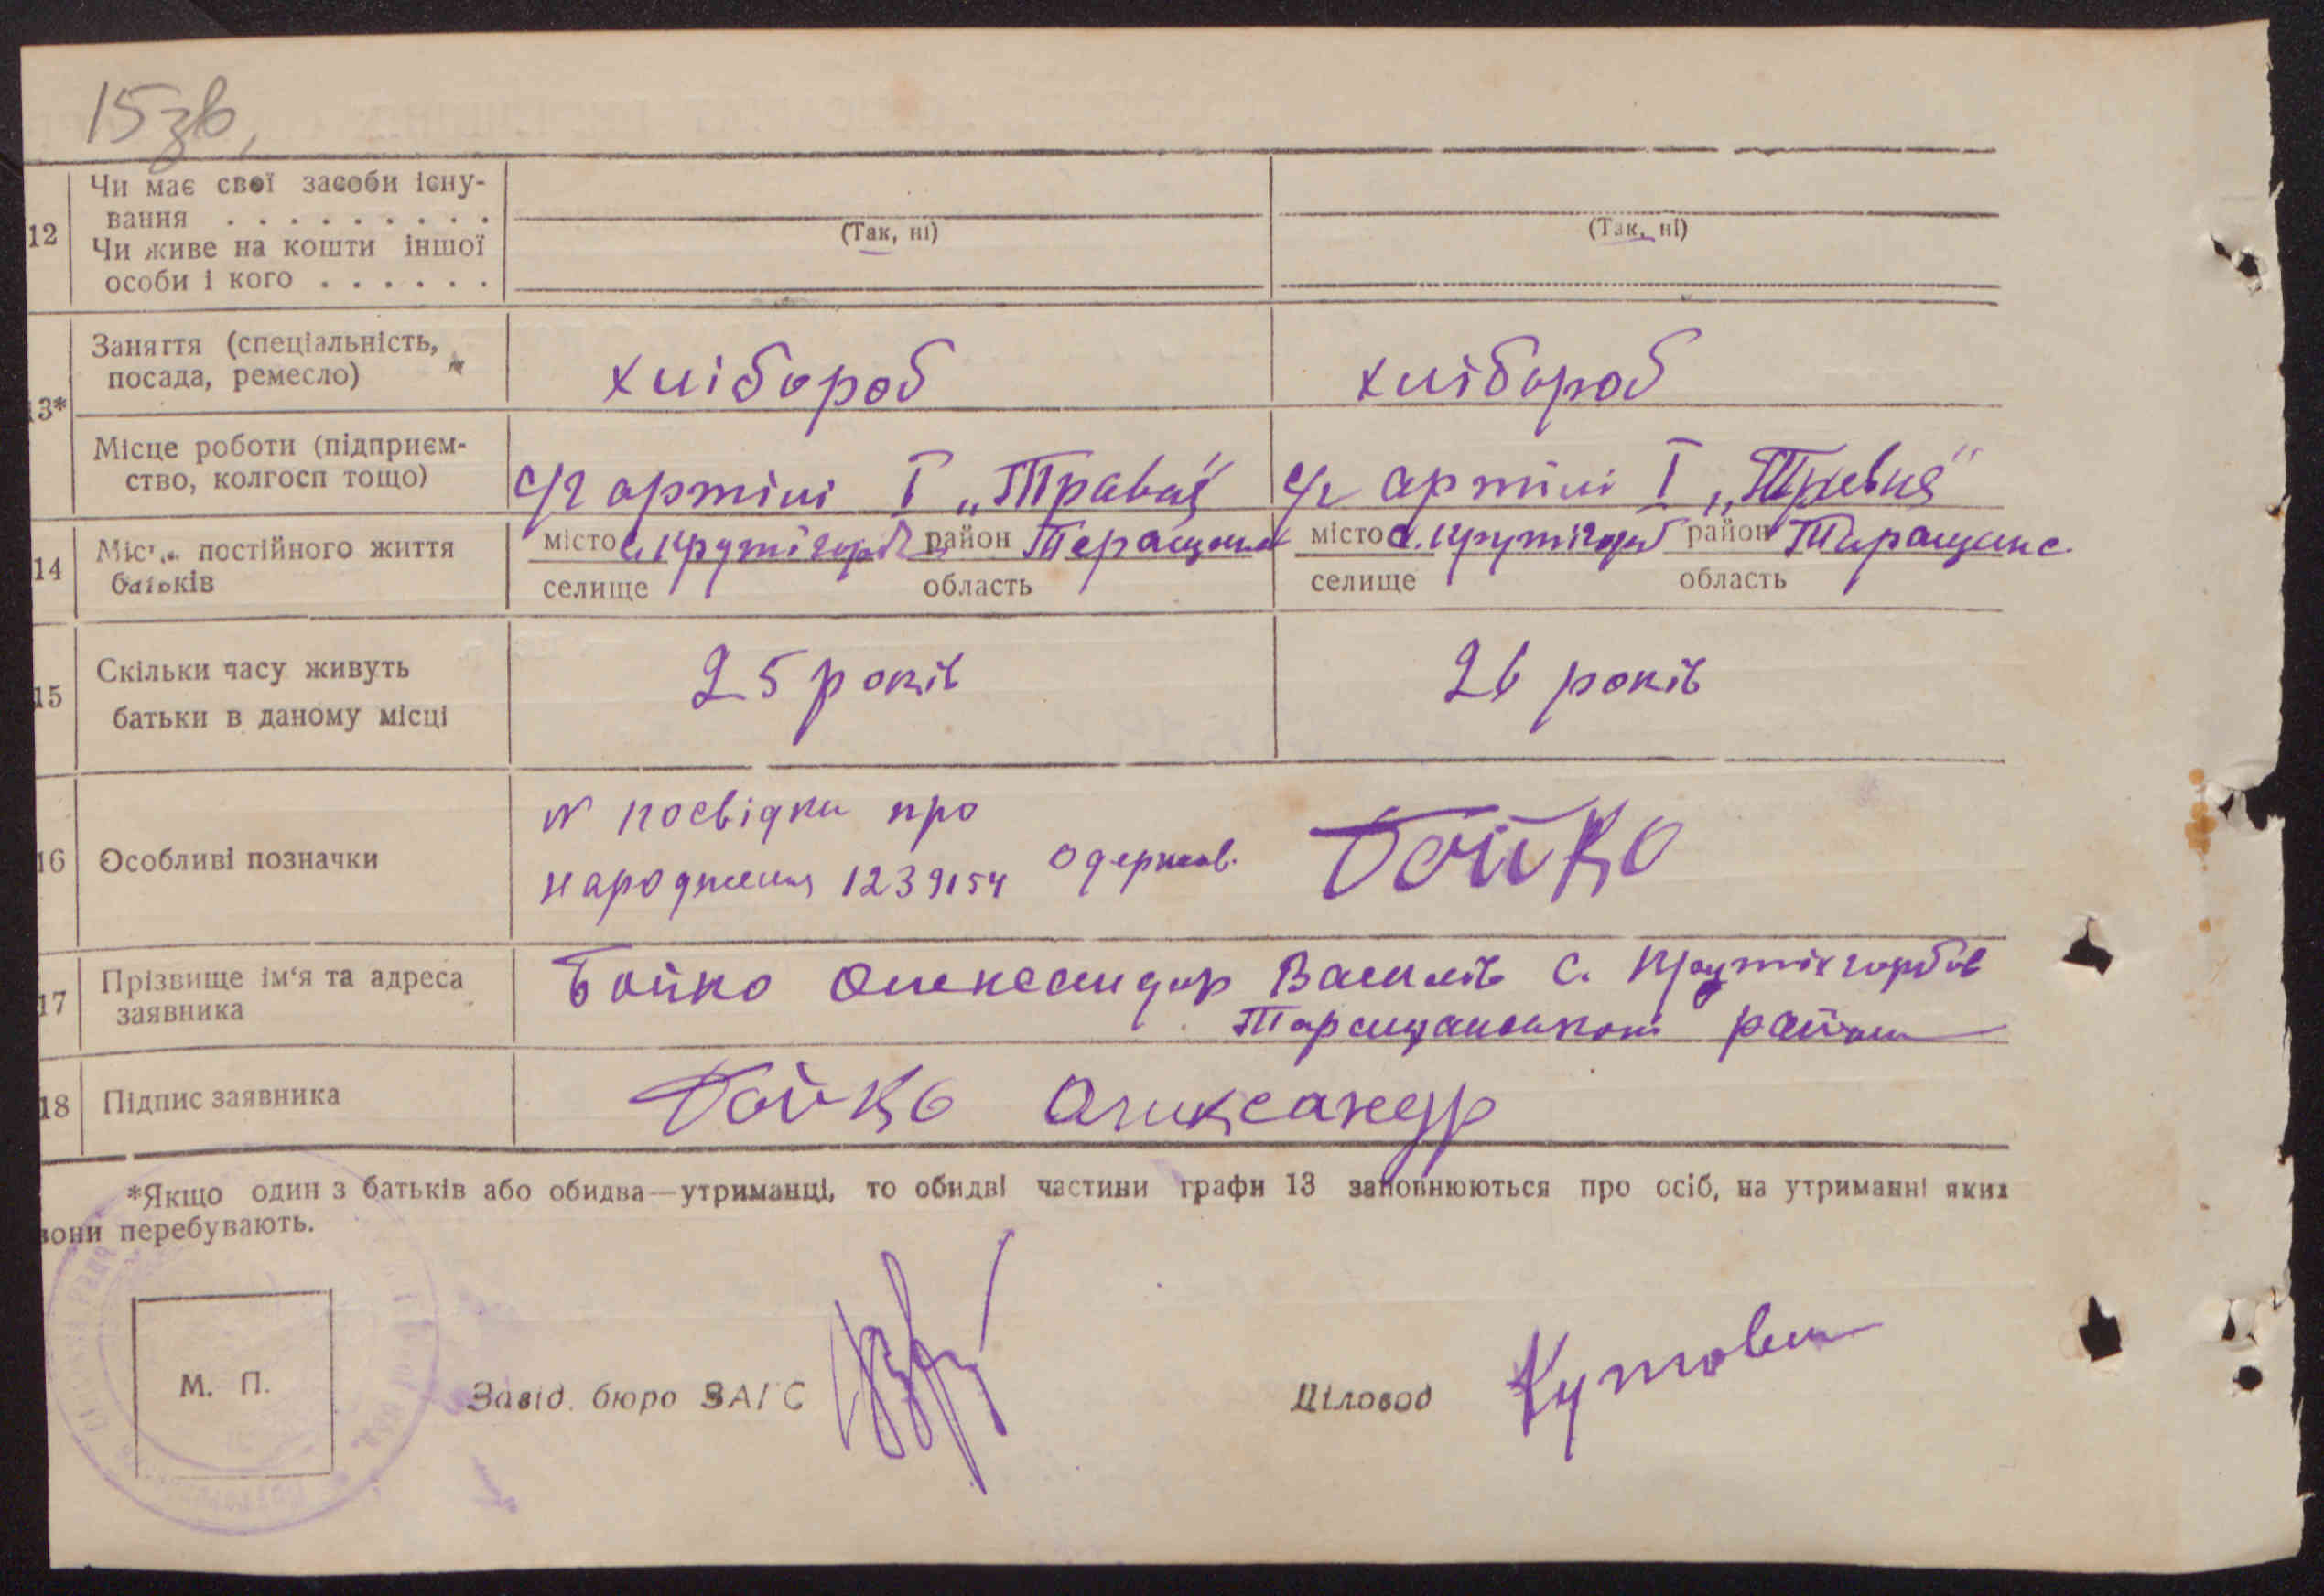 15зв,
12
Чи має свої засоби існу-
вання . . . . . . . . .
Чи живе на кошти іншої
особи і кого . . . . . .
(Так, ні)
(Так, ні)
13*
Заняття (спеціальність,
посада, ремесло)
хлібороб
хлібороб
Місце роботи (підприєм-
ство, колгосп тощо)
с/г артілі І „Травня"
с/г артілі І „Травня"
14
Місце постійного життя
батьків
місто с. Крутігорб район Таращанс
селище область
місто с. Крутігорб район Таращанс.
селище область
15
Скільки часу живуть
батьки в даному місці
25 років
26 років
16
Особливі позначки
№ посвідки про
народження 1239154 одержав. Бойко
17
Прізвище ім'я та адреса
заявника
Бойко Олександр Васильов с. Крутихгорбов
Таращанського району
18
Підпис заявника
Бойко Олександр
*Якщо один з батьків або обидва—утриманці, то обидві частини графи 13 заповнюються про осіб, на утриманні яких
вони перебувають.
М. П.
Завід. бюро ЗАГС
Діловод